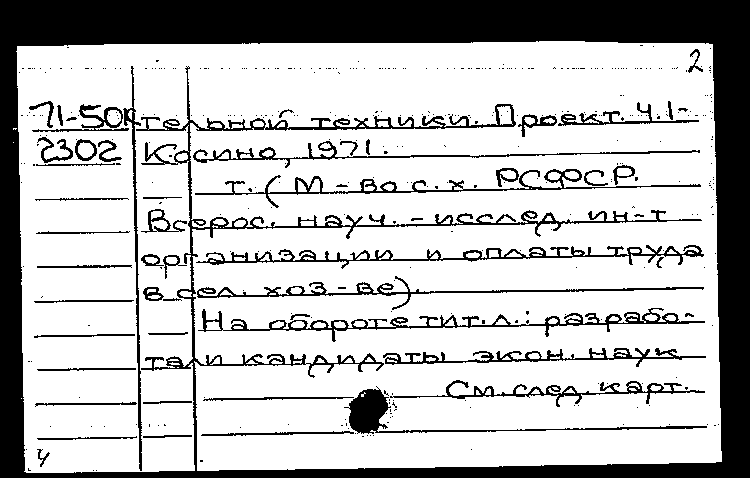 2
71-50к тельной техники. Проект. Ч.1-
2302 Косино, 1971.
т. (М-во с.х. РСФСР.
Всерос. науч.-исслед. ин-т
организации и оплаты труда
в сел. хоз-ве).
На обороте тит.л.: разрабо-
тали кандидаты экон. наук
См. след. карт.
4